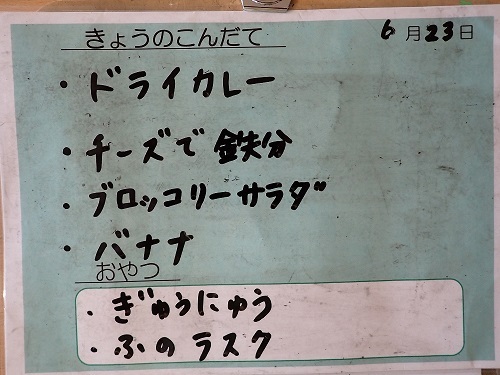 きょうのこんだて 6月23日
・ドライカレー
・チーズで鉄分
・ブロッコリーサラダ
・バナナ
おやつ
・ぎゅうにゅう
・ふのラスク